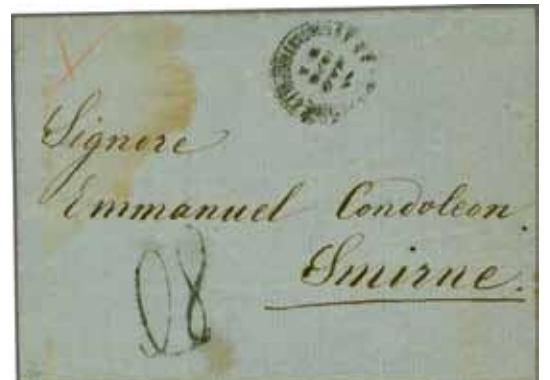 Signore
Emmanuel Condoleon.
Smirne.